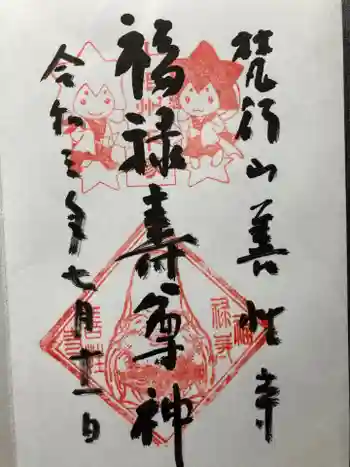 梵行山善性寺
福禄寿尊神
令和三年七月十二日